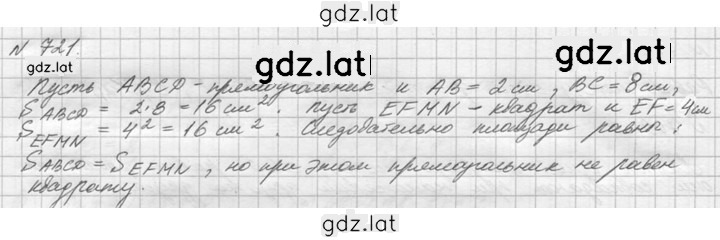 gdz.lat
N 721.
gdz.lat
gdz.lat
gdz.lat
Пусть ABCD - прямоугольник и AB = 2 см, BC = 8 см,
S_ABCD = 2·8 = 16 см². Пусть EFMN - квадрат и EF = 4 см
S_EFMN = 4² = 16 см². Следовательно площади равны:
S_ABCD = S_EFMN, но при этом прямоугольник не равен
квадрату.
gdz.lat
gdz.lat
gdz.lat